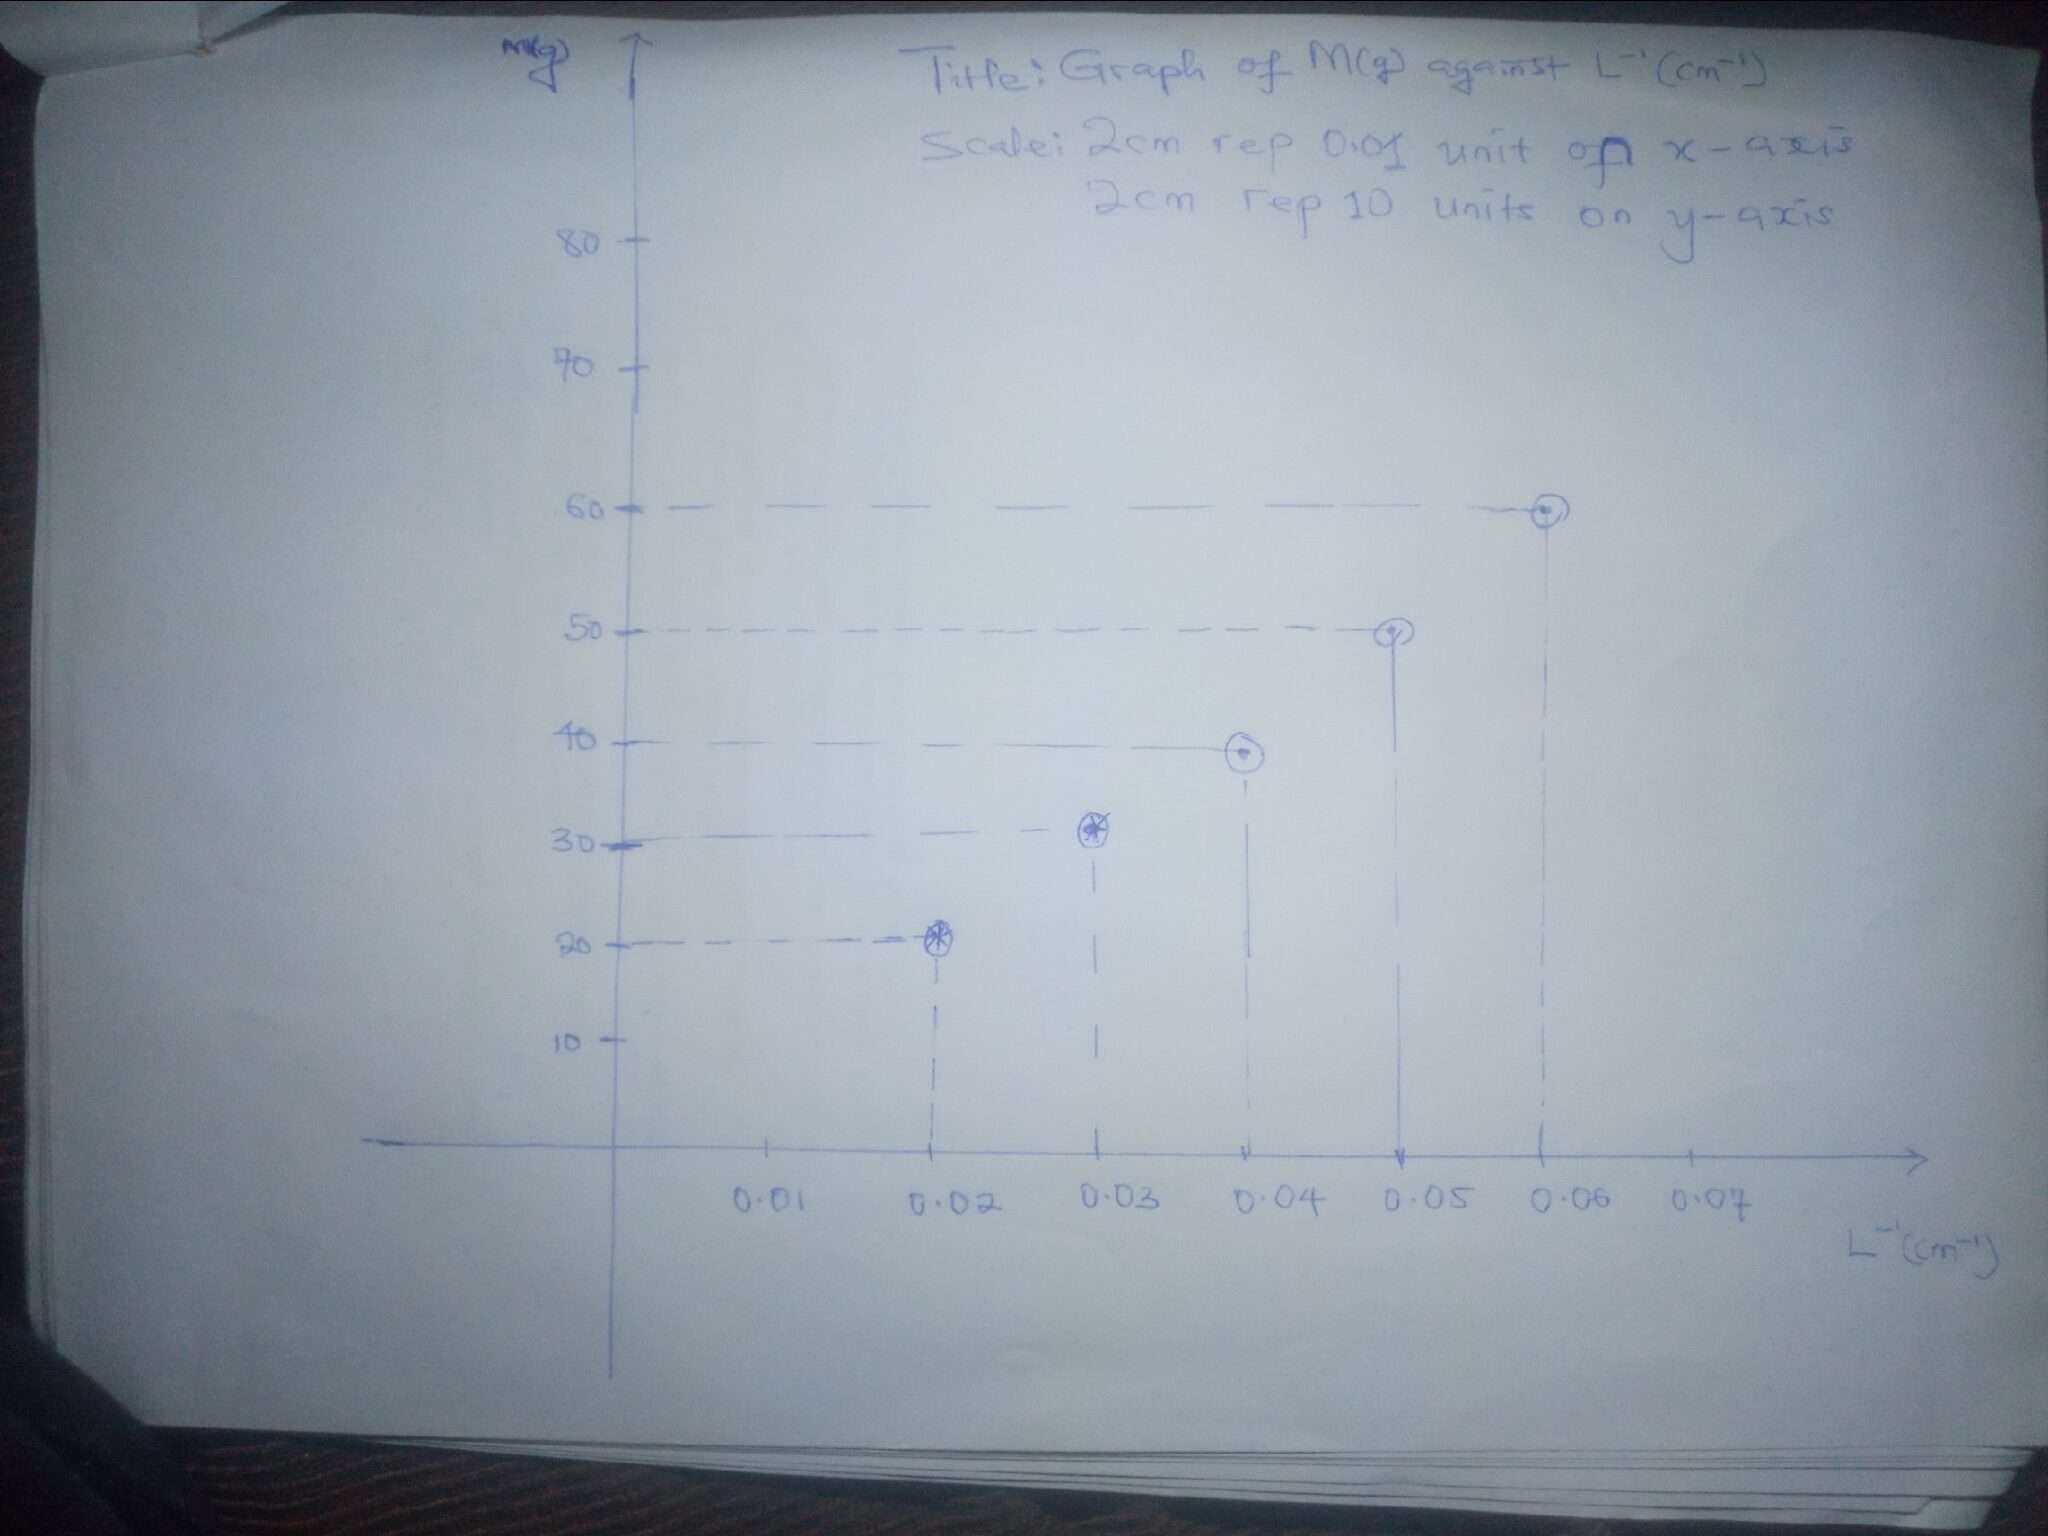 M(g)
Title: Graph of M(g) against L⁻¹(cm⁻¹)
Scale: 2cm rep 0.01 unit on x-axis
2cm rep 10 units on y-axis
80
70
60
50
40
30
20
10
0.01 0.02 0.03 0.04 0.05 0.06 0.07
L⁻¹(cm⁻¹)